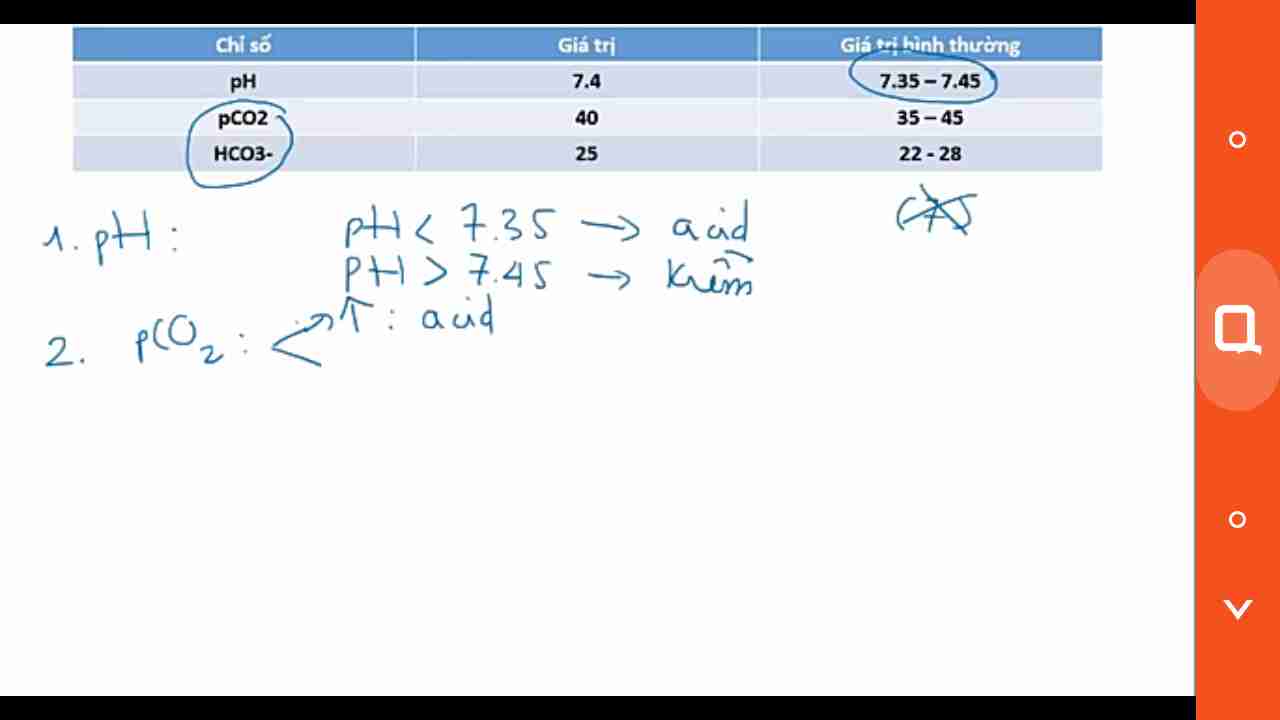 Chỉ số Giá trị Giá trị bình thường
pH 7.4 7.35 – 7.45
pCO2 40 35 – 45
HCO3- 25 22 - 28
1. pH : pH < 7.35 → acid (7)
pH > 7.45 → kiềm
2. pCO₂ : < ↑ : acid